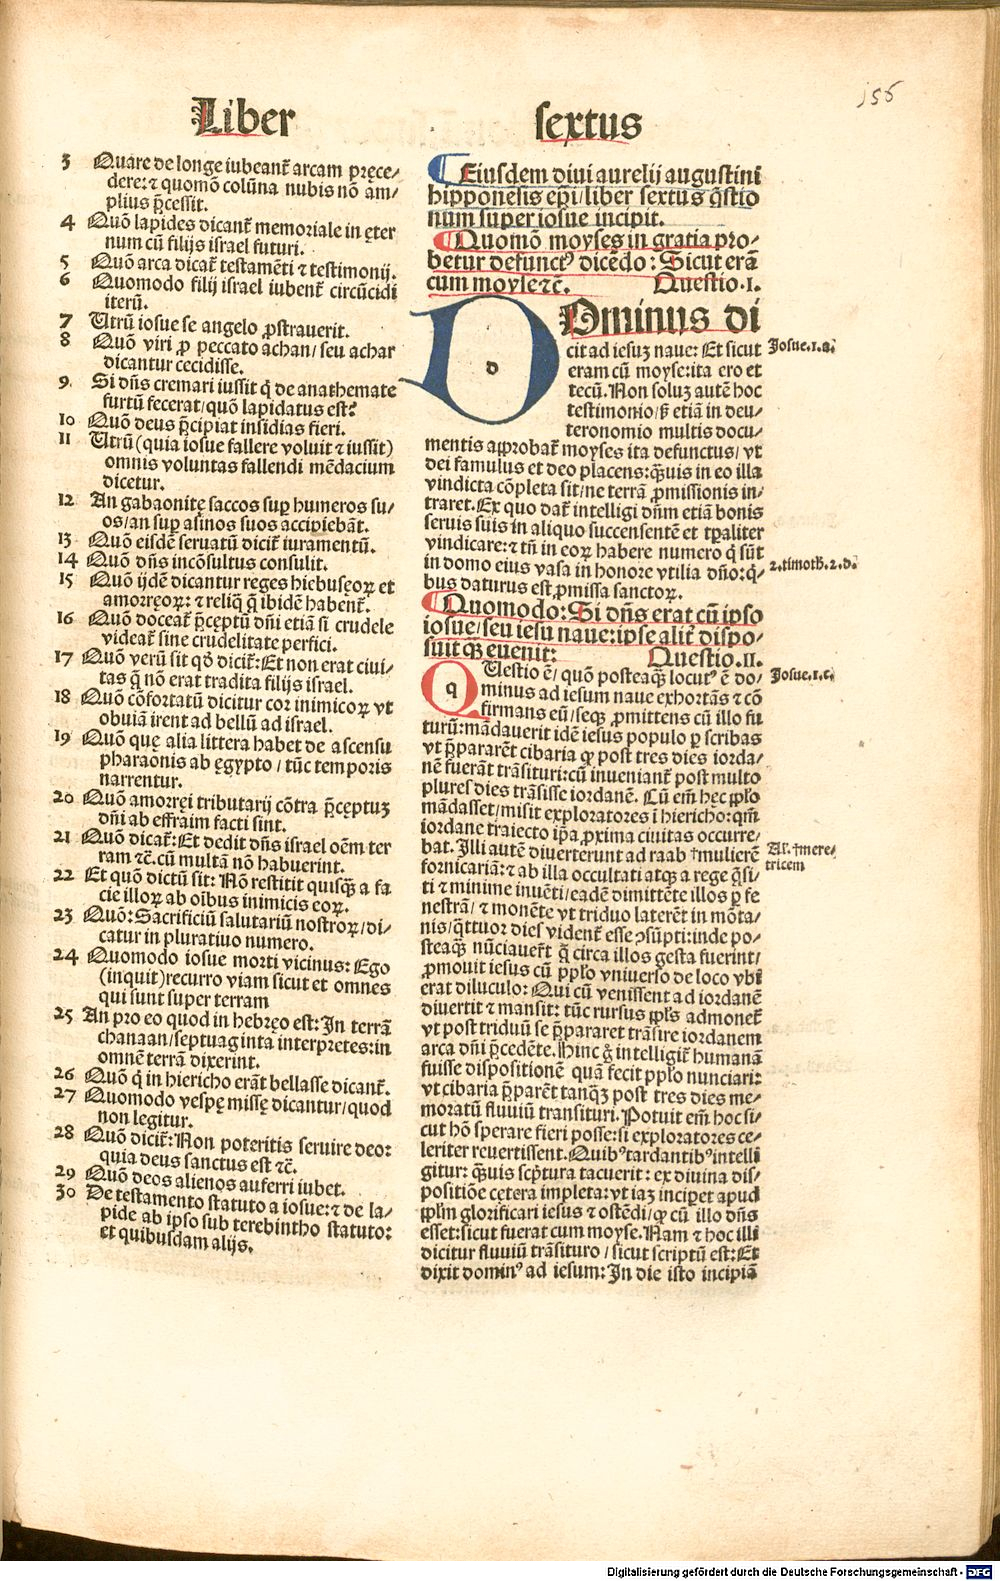 156
Liber sextus
3 Quare de longe iubeant᷑ arcam pręce⸗
dere: ⁊ quomō colūna nubis nō am⸗
plius p̄cessit.
4 Quō lapides dicant᷑ memoriale in ęter
num cū filijs israel futuri.
5 Quō arca dicat᷑ testamēti ⁊ testimonij.
6 Quomodo filij israel iubent᷑ circūcidi
iterū.
7 Utrū iosue se angelo ꝓstrauerit.
8 Quō viri ꝓ peccato achan/ seu achar
dicantur cecidisse.
9 Si dn̄s cremari iussit q̇ de anathemate
furtū fecerat/quō lapidatus est?
10 Quō deus p̄cipiat insidias fieri.
11 Utrū (quia iosue fallere voluit ⁊ iussit)
omnis voluntas fallendi mēdacium
dicetur.
12 An gabaonitę saccos suꝑ humeros su⸗
os/an suꝑ asinos suos accipiebāt.
13 Quō eisdē seruatū dicit᷑ iuramentū.
14 Quō dn̄s incōsultus consulit.
15 Quō ijdē dicantur reges hiebuseoꝝ et
amorręoꝝ: ⁊ reliq̇ q̄ ibidē habent᷑.
16 Quō doceat᷑ p̄ceptū dn̄i etiā si crudele
videat᷑ sine crudelitate perfici.
17 Quō verū sit qd̓ dicit᷑: Et non erat ciui⸗
tas q̄ nō erat tradita filijs israel.
18 Quō cōfortatū dicitur cor inimicoꝝ vt
obuiā irent ad bellū ad israel.
19 Quō quę alia littera habet de ascensu
pharaonis ab ęgypto / tūc temporis
narrentur.
20 Quō amorręi tributarij cōtra p̄ceptuꝫ
dn̄i ab effraim facti sint.
21 Quō dicat᷑: Et dedit dn̄s israel oēm ter
ram ⁊c̄. cū multā nō habuerint.
22 Et quō dictū sit: Nō restitit quisꝗ̄ a fa
cie illoꝝ ab oībus inimicis eoꝝ.
23 Quō: Sacrificiū salutariū nostroꝝ/di⸗
catur in pluratiuo numero.
24 Quomodo iosue morti vicinus: Ego
(inquit) recurro viam sicut et omnes
qui sunt super terram
25 An pro eo quod in hebręo est: In terrā
chanaan/septuaginta interpretes: in
omnē terrā dixerint.
26 Quō q̇ in hiericho erāt bellasse dicant᷑.
27 Quomodo vespę missę dicantur/quod
non legitur.
28 Quō dicit᷑: Non poteritis seruire deo:
quia deus sanctus est ⁊c̄.
29 Quō deos alienos auferri iubet.
30 De testamento statuto a iosue: ⁊ de la⸗
pide ab ipso sub terebintho statuto:
et quibusdam alijs.
Eiusdem diui aurelij augustini
hipponēsis ep̄i/liber sextus q̄stio
num super iosue incipit.
Quomō moyses in gratia pro⸗
betur defunctꝰ dicēdo: Sicut erā
cum moyse ⁊c̄. Questio.I.
d
DOminus di
cit ad iesuꝫ naue: Et sicut
eram cū moyse: ita ero et
tecū. Non soluꝫ autē hoc
testimonio/sꝫ etiā in deu⸗
teronomio multis docu⸗
mentis approbat᷑ moyses ita defunctus/ vt
dei famulus et deo placens: ꝗ̄uis in eo illa
vindicta cōpleta sit/ne terrā ꝓmissionis in⸗
traret. Ex quo dat᷑ intelligi dn̄m etiā bonis
seruis suis in aliquo succensentē et tꝑaliter
vindicare: ⁊ tn̄ in eoꝝ habere numero q̇ sūt
in domo eius vasa in honore vtilia dn̄o: q̇⸗
bus daturus est ꝓmissa sanctoꝝ.
Quomodo: Si dn̄s erat cū ipso
iosue/seu iesu naue: ipse alit᷑ dispo⸗
suit ꝗ̄ euenit: Questio.II.
q
QUestio ē/ quō posteaꝗ̄ locutꝰ ē do⸗
minus ad iesum naue exhortās ⁊ cō
firmans eū/seqꝫ ꝓmittens cū illo fu
turū: mādauerit idē iesus populo ꝑ scribas
vt p̄pararēt cibaria ꝙ post tres dies iorda⸗
nē fuerāt trāsituri: cū inueniant᷑ post multo
plures dies trāsisse iordanē. Cū em̄ hęc pp̄lo
mādasset/misit exploratores ī hiericho: qm̄
iordane traiecto ip̄a ꝓxima ciuitas occurre⸗
bat. Illi autē diuerterunt ad raab †mulierē
fornicariā: ⁊ ab illa occultati atqꝫ a rege q̄si⸗
ti ⁊ minime inuēti/ eadē dimittēte illos ꝑ fe
nestrā/ ⁊ monēte vt triduo laterēt in mōta⸗
nis/q̄ttuor dies vident᷑ esse ꝯsūpti: inde po⸗
steaꝗ̄ nūciauer̄t q̄ circa illos gesta fuerint/
ꝓmouit iesus cū pp̄lo vniuerso de loco vbi
erat diluculo: Qui cū venissent ad iordanē
diuertit ⁊ mansit: tūc rursus pp̄ls admonet᷑
vt post triduū se p̄pararet trāsire iordanem
arca dn̄i p̄cedēte. Hinc g̊ intelligit᷑ humanā
fuisse dispositionē quā fecit pp̄lo nunciari:
vt cibaria p̄parēt tanꝗ̄ꝫ post tres dies me⸗
moratū fluuiū transituri. Potuit em̄ hoc si⸗
cut hō sperare fieri posse: si exploratores ce⸗
leriter reuertissent. Quibꝰ tardantibꝰ intelli
gitur: ꝗ̄uis scp̄tura tacuerit: ex diuina dis⸗
positiōe cętera impleta: vt iaꝫ inciperet apud
pp̄lm glorificari iesus ⁊ ostēdi/ꝙ cū illo dn̄s
esset: sicut fuerat cum moyse. Nam ⁊ hoc illi
dicitur fluuiū trāsituro / sicut scriptū est: Et
dixit dominꝰ ad iesum: In die isto incipiā
Josue.1.a.
2.timoth̄.2.d.
Josue.1.c.
Al. †mere⸗
tricem
Digitalisierung gefördert durch die Deutsche Forschungsgemeinschaft - DFG